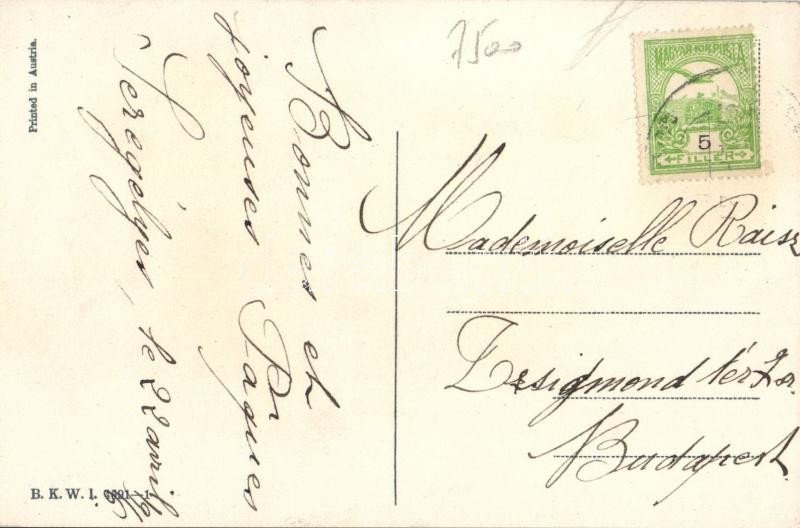 Printed in Austria.
7500
MAGYAR KIR. POSTA
5
FILLÉR
Bonnes et
joyeuses Pâques
Seregélyes, le 22 avril
Mademoiselle Raisz
Zsigmond tér
Budapest
B. K. W. I.